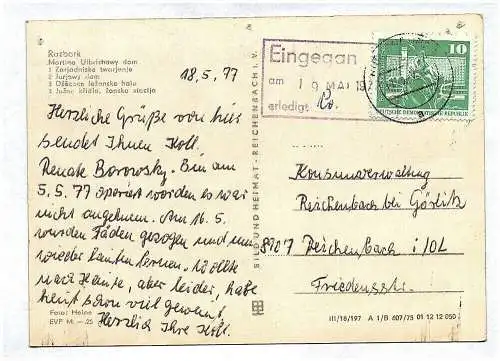 Rozbork
Martina Ulbrichowy dom
1 Zarjadniske twarjenje
2 Jurjowy dom
3 Džěćace ležanska hala
4 Južne křidło, žónska stacija
18.5.77
Herzliche Grüße von hier
sendet Ihnen Koll.
Renate Borowsky. Bin am
5.5.77 operiert worden es war
nicht angenehm. Am 16.5.
wurden Fäden gezogen und nun
wieder laufen lernen. Wollte
nach Hause, aber leider, habe
heut schon viel geweint,
Herzlich Ihre Koll.
Foto: Heine
EVP M -.25
BILD UND HEIMAT · REICHENBACH I. V.
Eingegan
am 19. MAI 197
erledigt:
10
DEUTSCHE DEMOKRATISCHE REPUBLIK
Konsumverwaltung
Reichenbach bei Görlitz
8907 Reichenbach i/OL
Friedensstr.
III/18/197 A 1/B 607/75 01 12 12 050